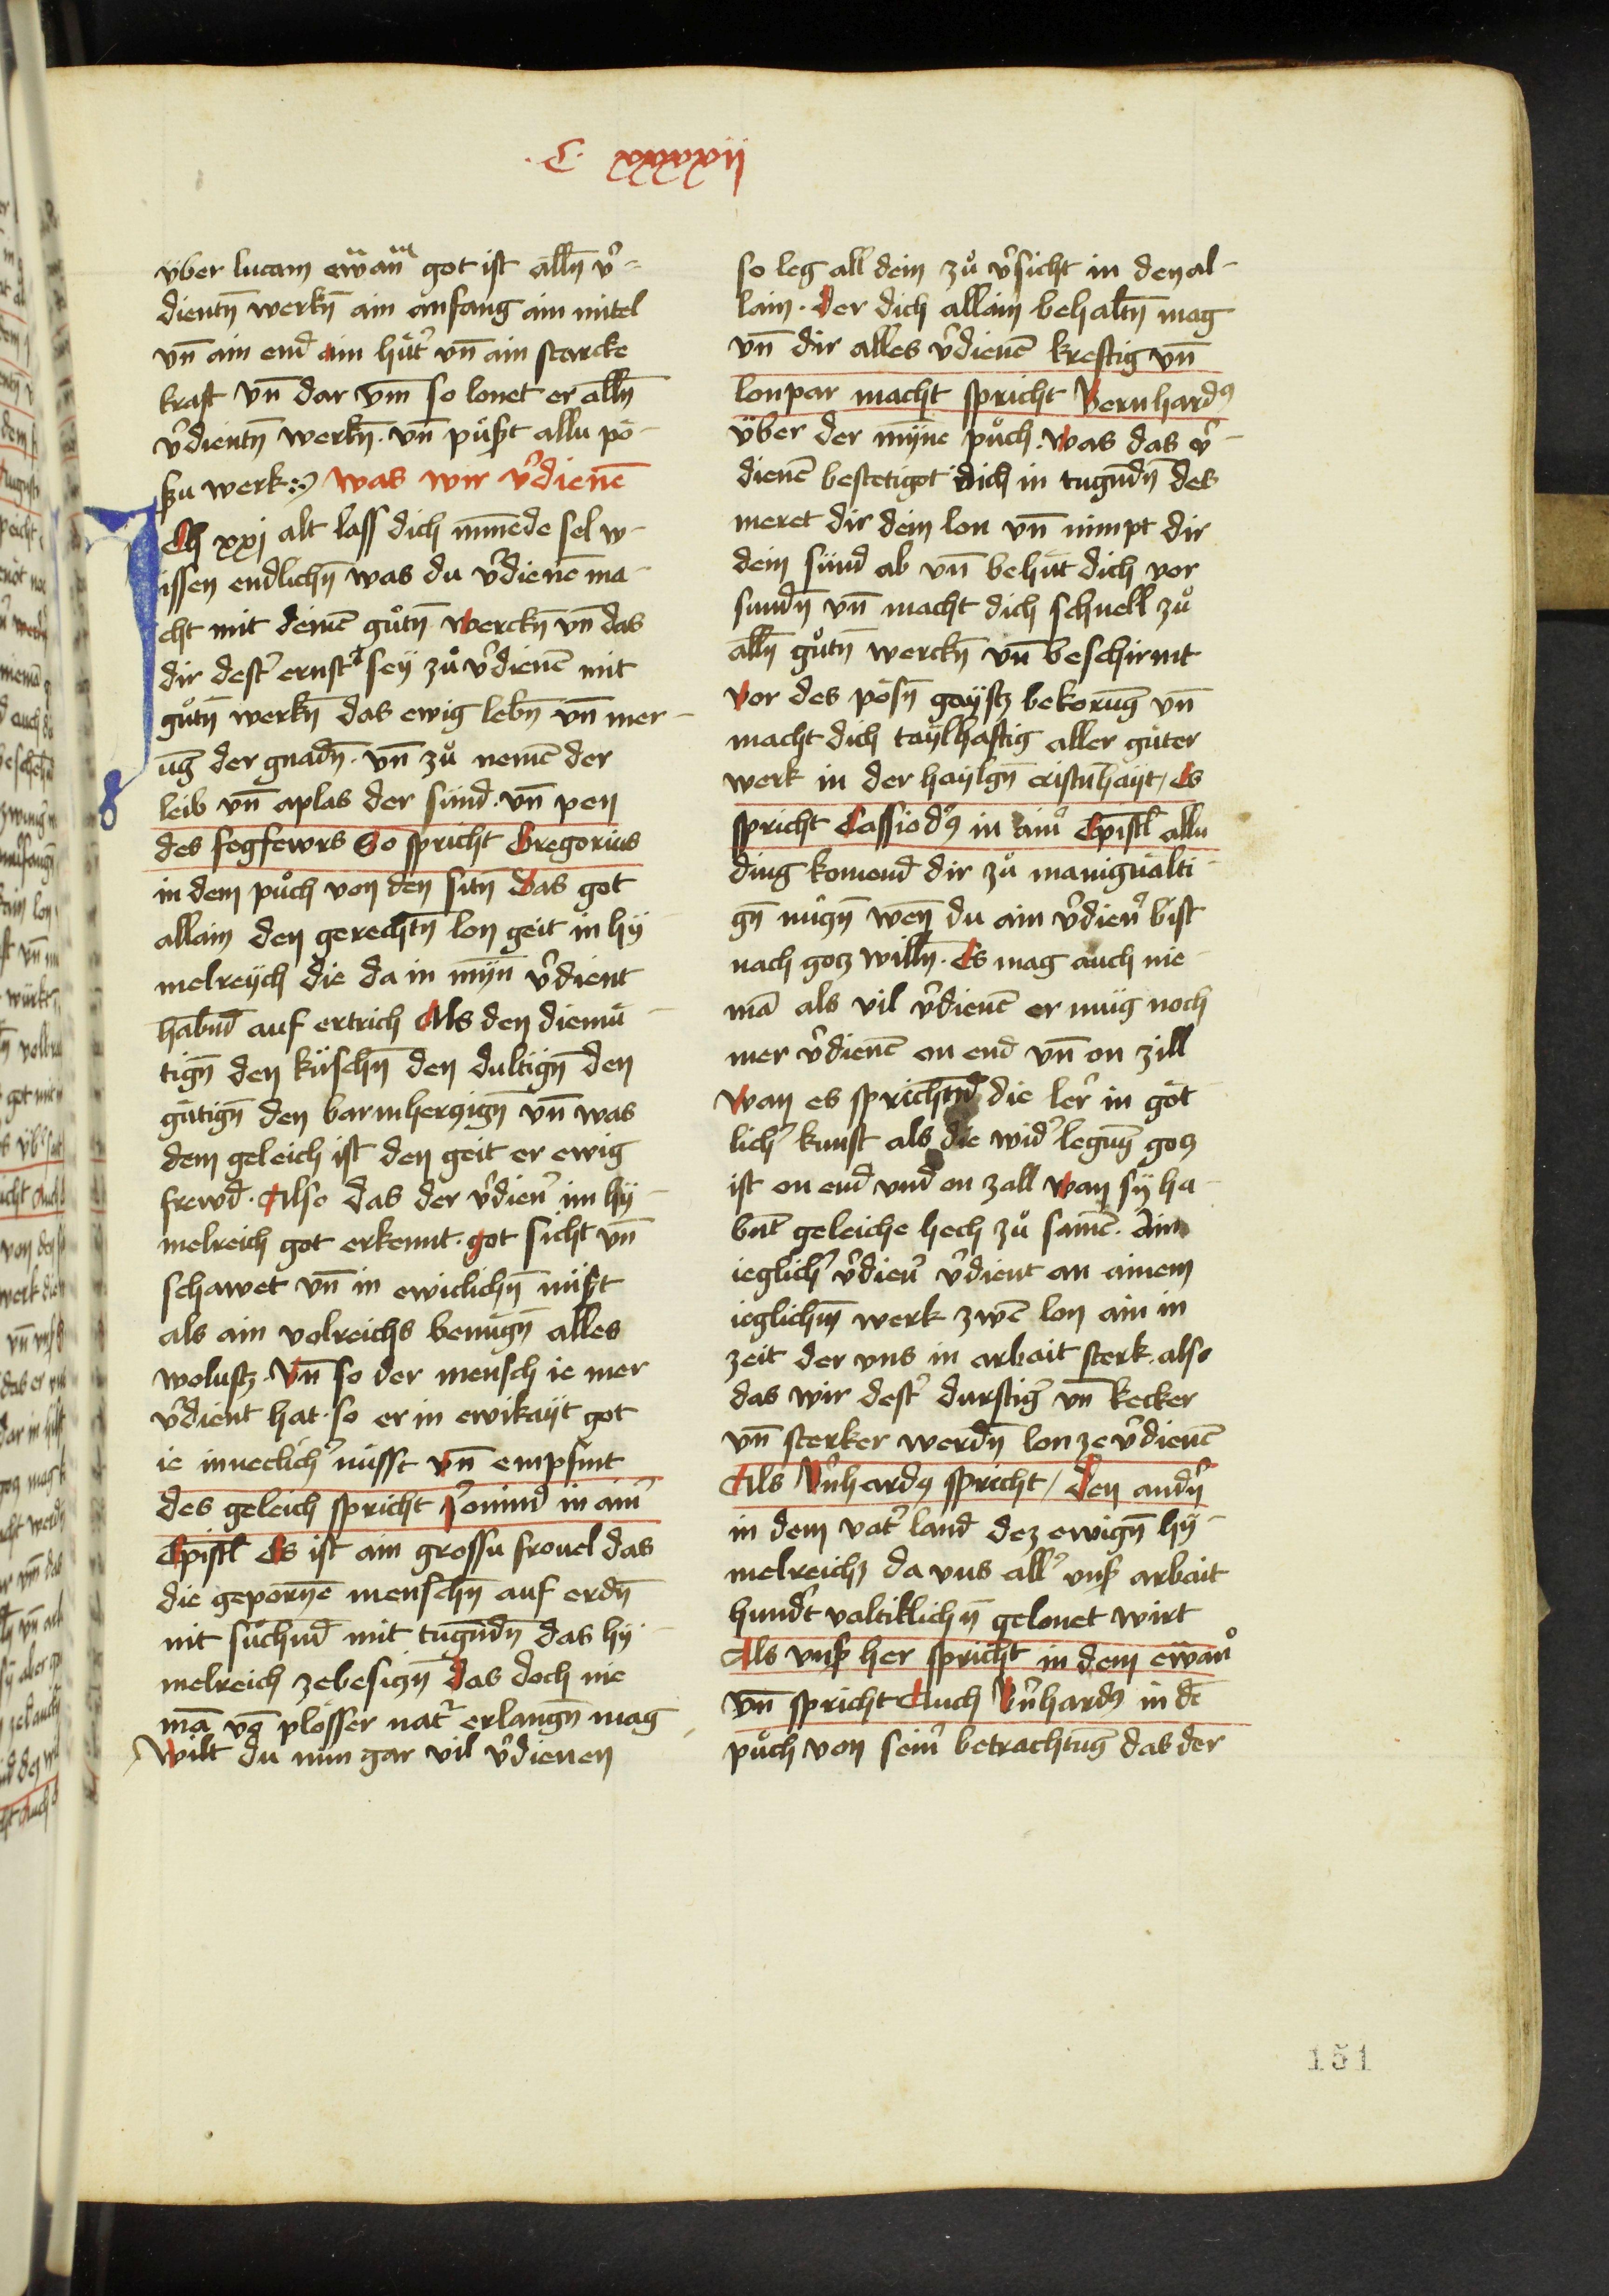 · C · xxxxvij
über lucam ewan̄ᵐ got ist alln̄ v̄-
dientn̄ werkn̄ ain anfang ain mitel
vn̄ ain end ain hůt̄ vn̄ ain starcke
kraft vn̄ dar vm̄ so lonet er alln̄
v̄dientn̄ werkn̄. vn̄ půßt allu pö-
ßu werk :~ was wir v̄dienē
Ich xxj alt lass dich mīnede sel w-
issen endlichn̄ was du v̄dienē ma-
cht mit deinē gůtn̄ werckn̄ vn̄ das
dir dest̄ ernst̄ seÿ zů v̄dienē mit
gůtn̄ werkn̄ das ewig lebn̄ vn̄ mer-
ūg der gnadn̄. vn̄ zů nemē der
leib vn̄ aplas der sünd. vn̄ pen
des fegfewrs So spricht Gregorius
in dem půch von den sitn̄ Das got
allain den gerechtn̄ lon geit in hÿ
melreÿch die da in mÿn̄ v̄dient
habnd auf ertrich Als den diemü-
tign̄ den küschn̄ den dultign̄ den
gütign̄ den barmhergign̄ vn̄ was
dem geleich ist den geit er ewig
frewd. Also das der v̄dien̄ im hÿ-
melreich got erkennt. got sicht vn̄
schawet vn̄ in ewiclichn̄ nüßt
als ain volreichs benügn̄ alles
wolustz. Vn̄ so der mensch ie mer
v̄dient hat. so er in ewikaÿt got
ie inneclich̄ nüsst vn̄ empfint
des geleich spricht Jeronimꝰ in ain̄
Epistl Es ist ain grossu frouel das
die gepornē menschn̄ auf erdn̄
nit sůchnd mit tugndn̄ das hÿ-
melreich zebesign̄ Das doch nie
mā vō plösser nat̄ erlangn̄ mag
Wilt du nun gar vil v̄dienen
so leg all dein zů v̄sicht in den al-
lain. Der dich allain behaltn̄ mag
vn̄ dir alles v̄dienē kreftig vn̄
lonpar macht spricht Bernhardꝰ
über der mÿne půch. Was das v̄-
dienē bestetigot dich in tugndn̄ des
meret dir dein lon vn̄ nimpt dir
dein sünd ab vn̄ behüt dich vor
sundn̄ vn̄ macht dich schnell zů
alln̄ gůtn̄ werckn̄ vn̄ beschirmt
Vor des pösn̄ gaÿstz bekorūg vn̄
macht dich taÿlhaftig aller güter
werk in der haÿlgn̄ cristnhaÿt / Es
spricht Cassiodꝰ in ain̄ Epistl allu
ding komend dir zů manigualti-
gn̄ nügn̄ wen̄ du ain v̄dien̄ bist
nach gotz willn̄. Es mag auch nie-
mā als vil v̄dienē er müg noch
mer v̄dienē on end vn̄ on zill
Wan es sprichnd die ler̄ in göt
lich̄ kunst als die wid̄ legung gotz
ist on end vnd on zall Wan sÿ ha-
bnt geleiche hech zů samē. Ain
ieglich̄ v̄dien̄ v̄dient an ainem
ieglichm̄ werk zwē lon ain in
zeit der vns in arbait sterk. also
das wir dest̄ durstiḡ vn̄ kecker
vn̄ sterker werdn̄ lon ze v̄dienē
Als B̄nhardꝰ spricht / Den andn̄
in dem vat̄ land dez ewign̄ hÿ-
melreichz da vns all̄ vnß arbait
hundt̄ valtiklichn̄ gelonet wirt
Als vnß her spricht in dem ewan̄°
vn̄ spricht Auch B̄nhardꝰ in dē
půch von sein̄ betrachtūg das der
151